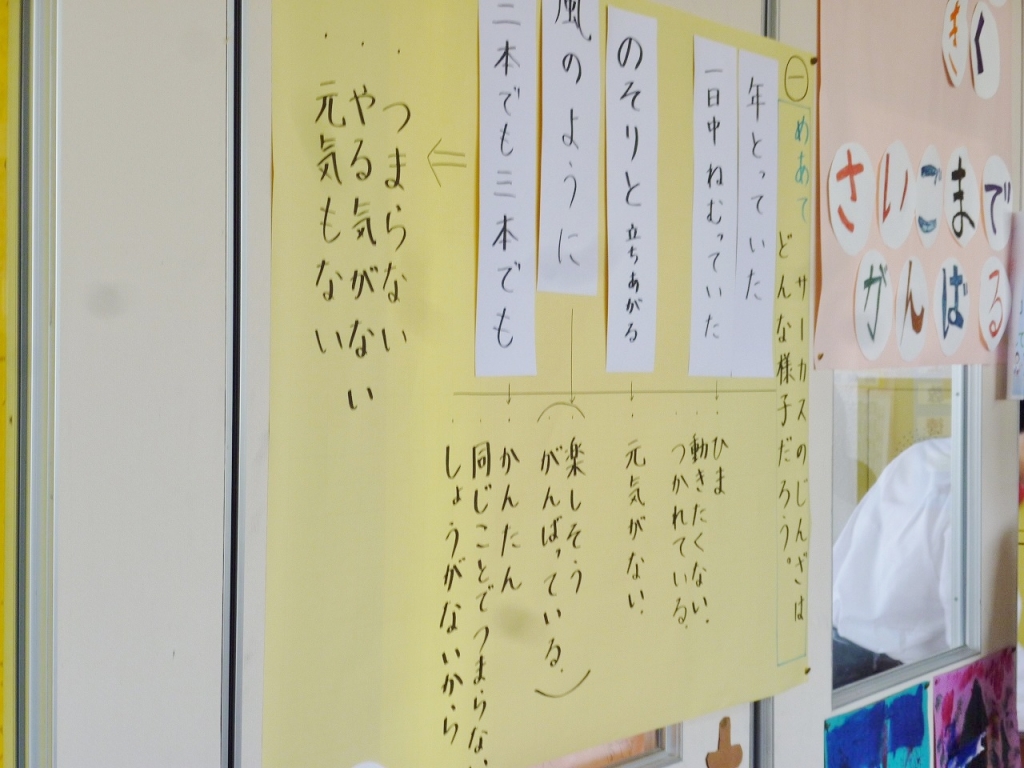 きく
さいごまで
がんばる
一
めあて
サーカスのじんざは
どんな様子だろう。
年とっていた
一日中ねむっていた
のそりと立ちあがる
風のように
三本でも三本でも
ひま
動きたくない。
つかれている。
元気がない。
楽しそう
がんばっている。
かんたん
同じことでつまらない
しょうがないから
つまらない
やる気がない
元気もない